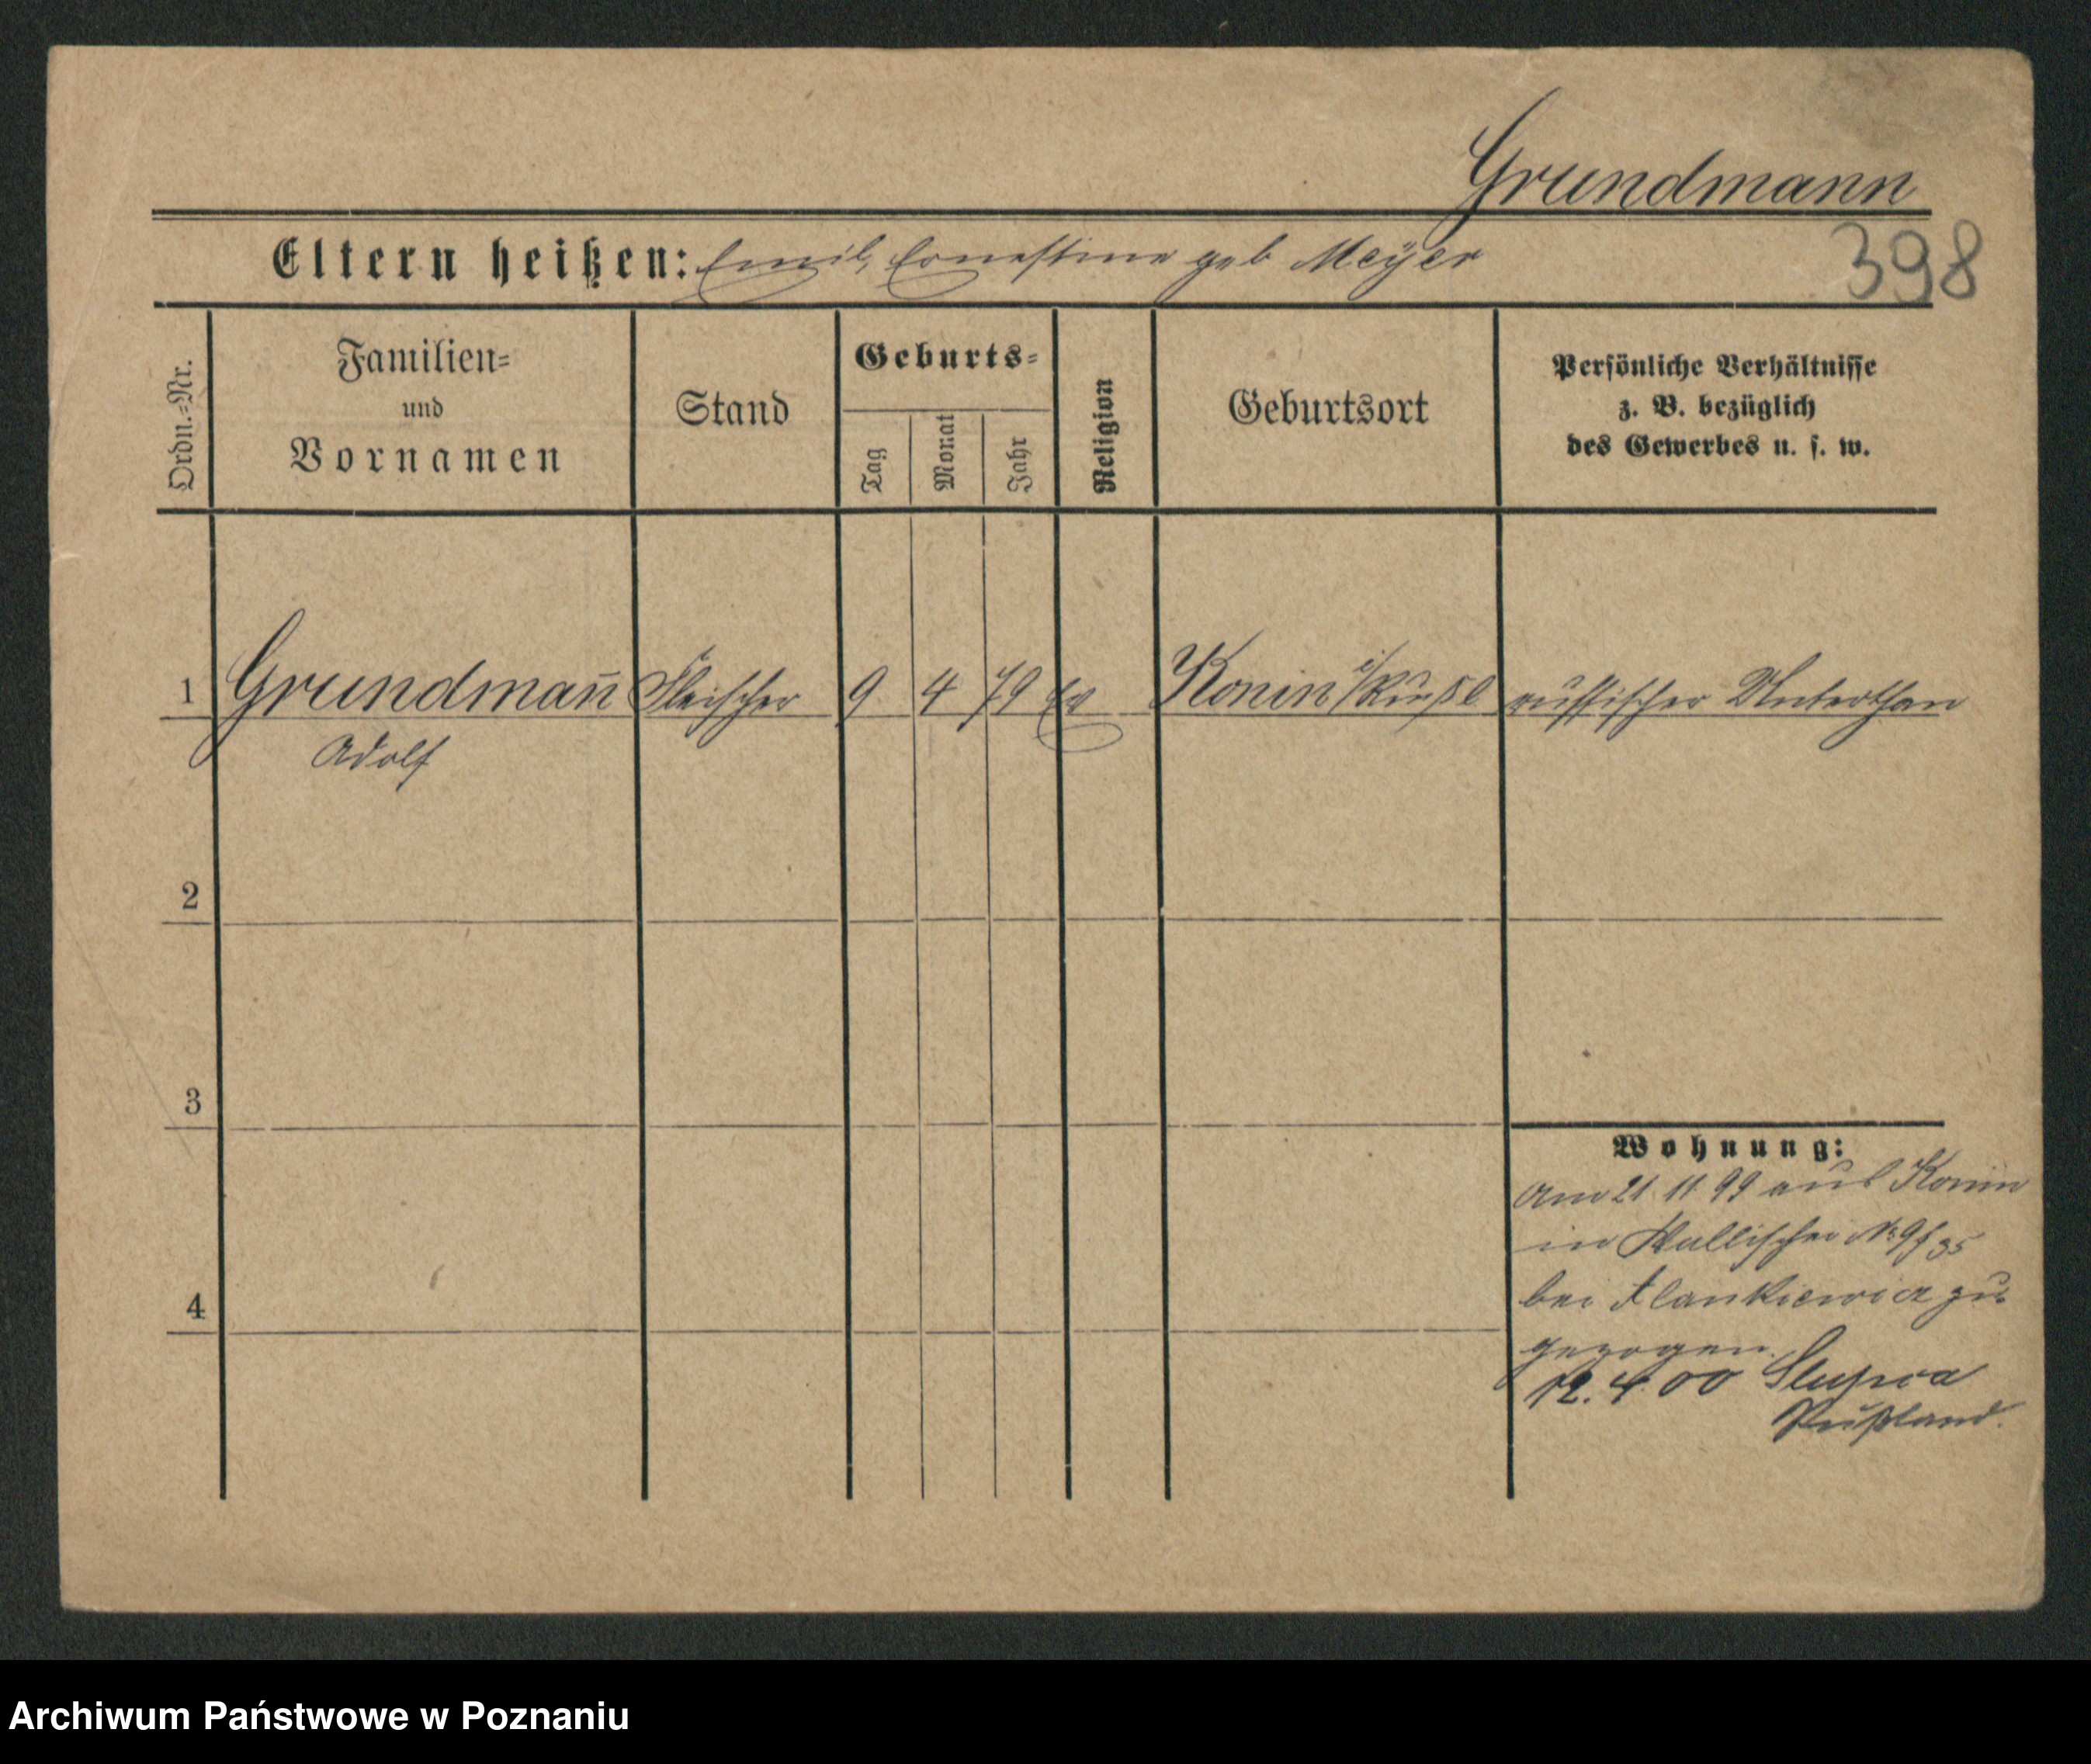 Grundmann
Eltern heißen: Emil, Ernestine geb Meÿer
398
Ordn.=Nr.
Familien=
und
Vornamen
Stand
Geburts=
Tag
Monat
Jahr
Religion
Geburtsort
Persönliche Verhältnisse
z. B. bezüglich
des Gewerbes u. s. w.
1 Grundman̄ Fleischer 9 4 79 Ev Konin i/Rußl russischer Unterthan
Adolf
2
3
4
Wohnung:
Am 21 11 99 aus Konin
in Wallischei No 9f 35
bei zu
gezogen.
12. 4. 00 Slupca
Rußland.
Archiwum Państwowe w Poznaniu